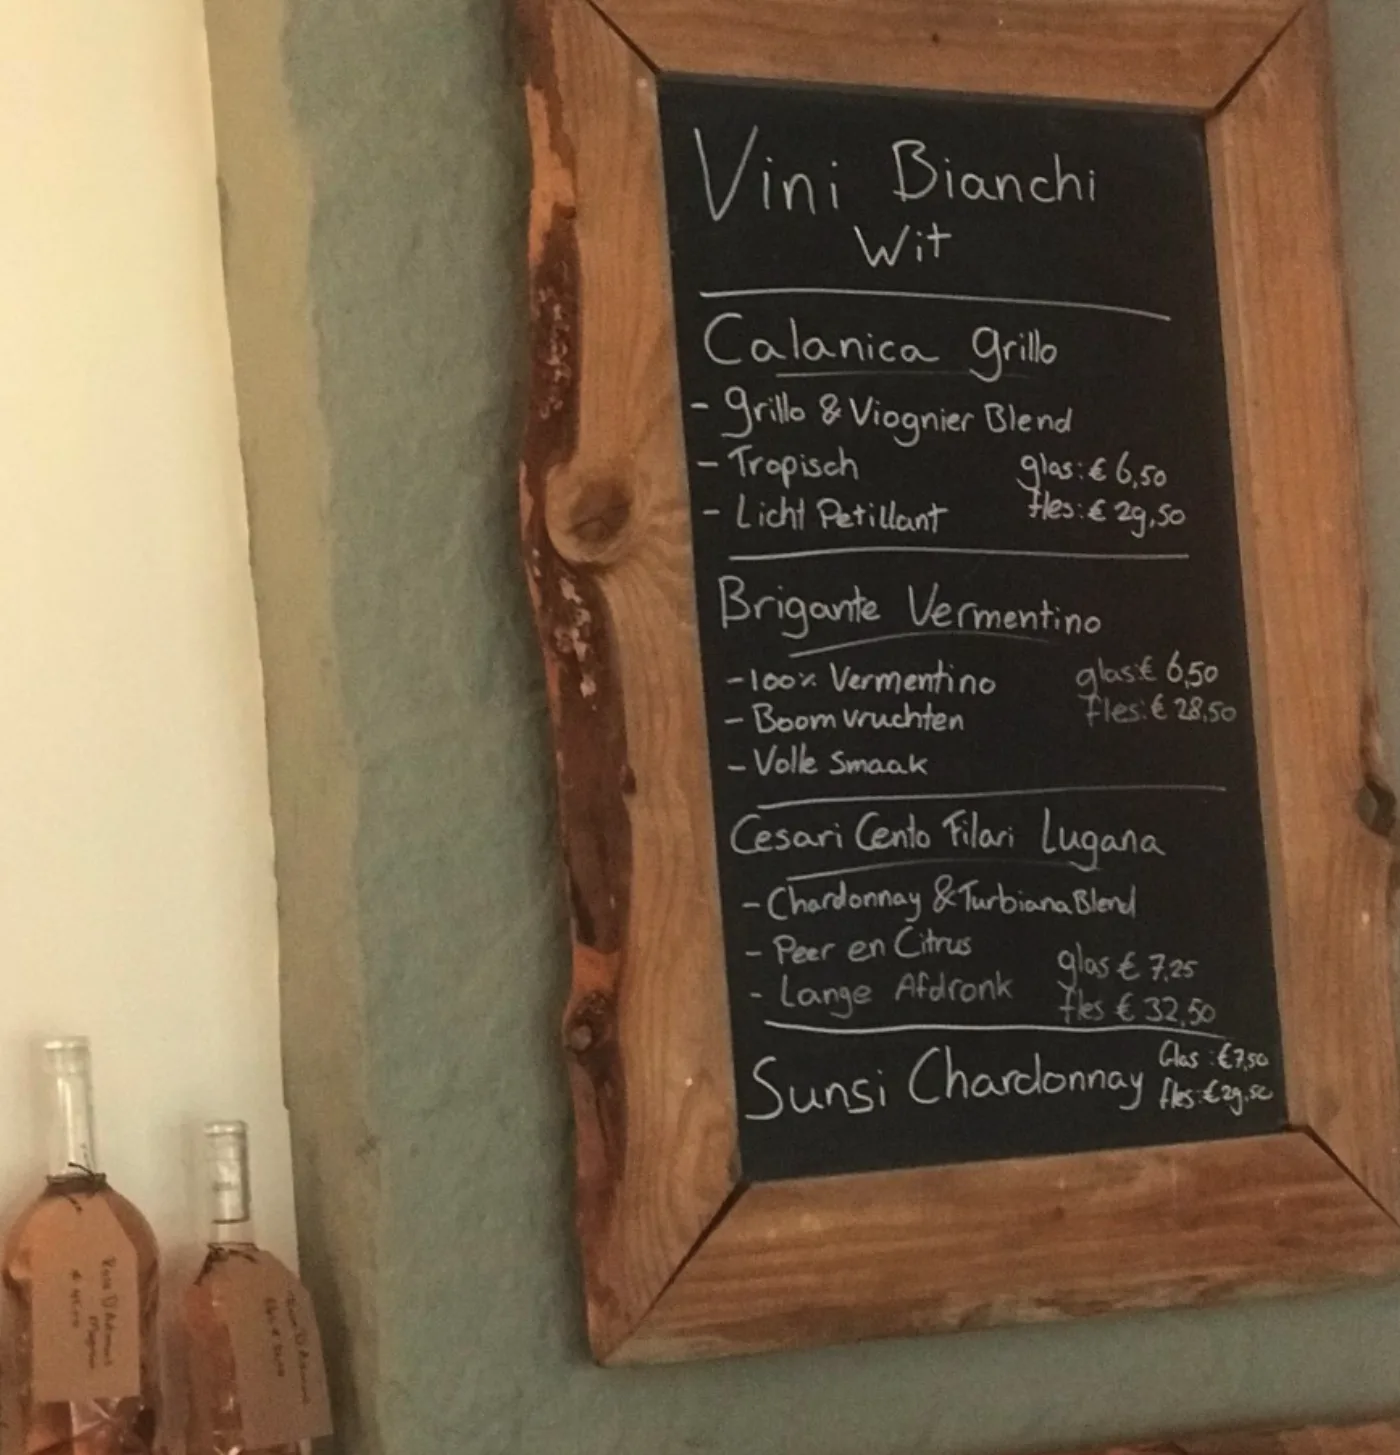 Vini Bianchi
Wit
Calanica Grillo
- Grillo & Viognier Blend
- Tropisch glas: € 6,50
- Licht Petillant fles: € 29,50
Brigante Vermentino
- 100% Vermentino glas: € 6,50
- Boomvruchten fles: € 28,50
- Volle Smaak
Cesari Cento Filari Lugana
- Chardonnay & Turbiana Blend
- Peer en Citrus glas € 7,25
- Lange Afdronk fles € 32,50
Sunsi Chardonnay Glas : € 7,50
fles: € 29,50